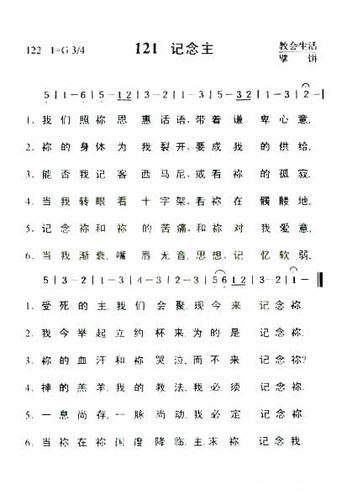 122 1=G 3/4 121 记念主 教会生活
擘饼
5 | 3-2 | 1-3 | 2-1 | 5-5 | 5-32 | 2-1 | 2-
1. 我们照祢恩惠话语,带着谦卑心意,
2. 祢的身体为我裂开,要成我的供给,
3. 能否我记客西马尼,或看祢的孤寂,
4. 当我转眼看十字架,看祢在髑髅地,
5. 记念祢和祢的苦痛,和祢对我爱意,
6. 当我渐衰,嘴唇无音,思想、记忆软弱,
1. 受死的主,我们会聚,现今来记念祢.
2. 我今举起立约杯来,为的是记念祢.
3. 祢的血汗和祢哭泣,而不来记念祢?
4. 神的羔羊,我的救法,我必须记念祢.
5. 一息尚存,一脉尚动,我必定记念祢.
6. 当祢在祢国度降临,主,求祢记念我.